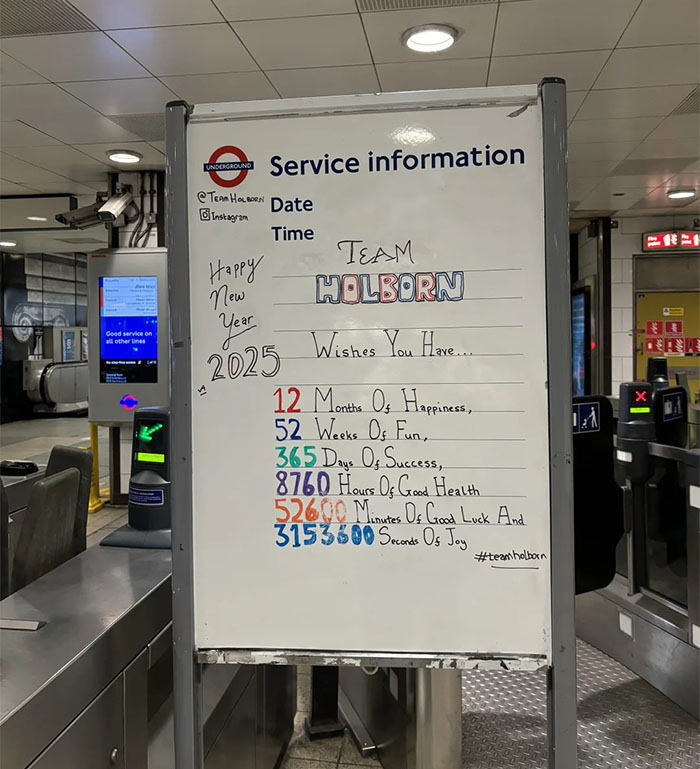 UNDERGROUND
Service information
@TEAM HOLBORN
Instagram
Date
Time
Happy
New
Year
2025
TEAM
HOLBORN
Wishes You Have...
12 Months Of Happiness,
52 Weeks Of Fun,
365 Days Of Success,
8760 Hours Of Good Health
52600 Minutes Of Good Luck And
3153600 Seconds Of Joy
#teamholborn
Good service on
all other lines